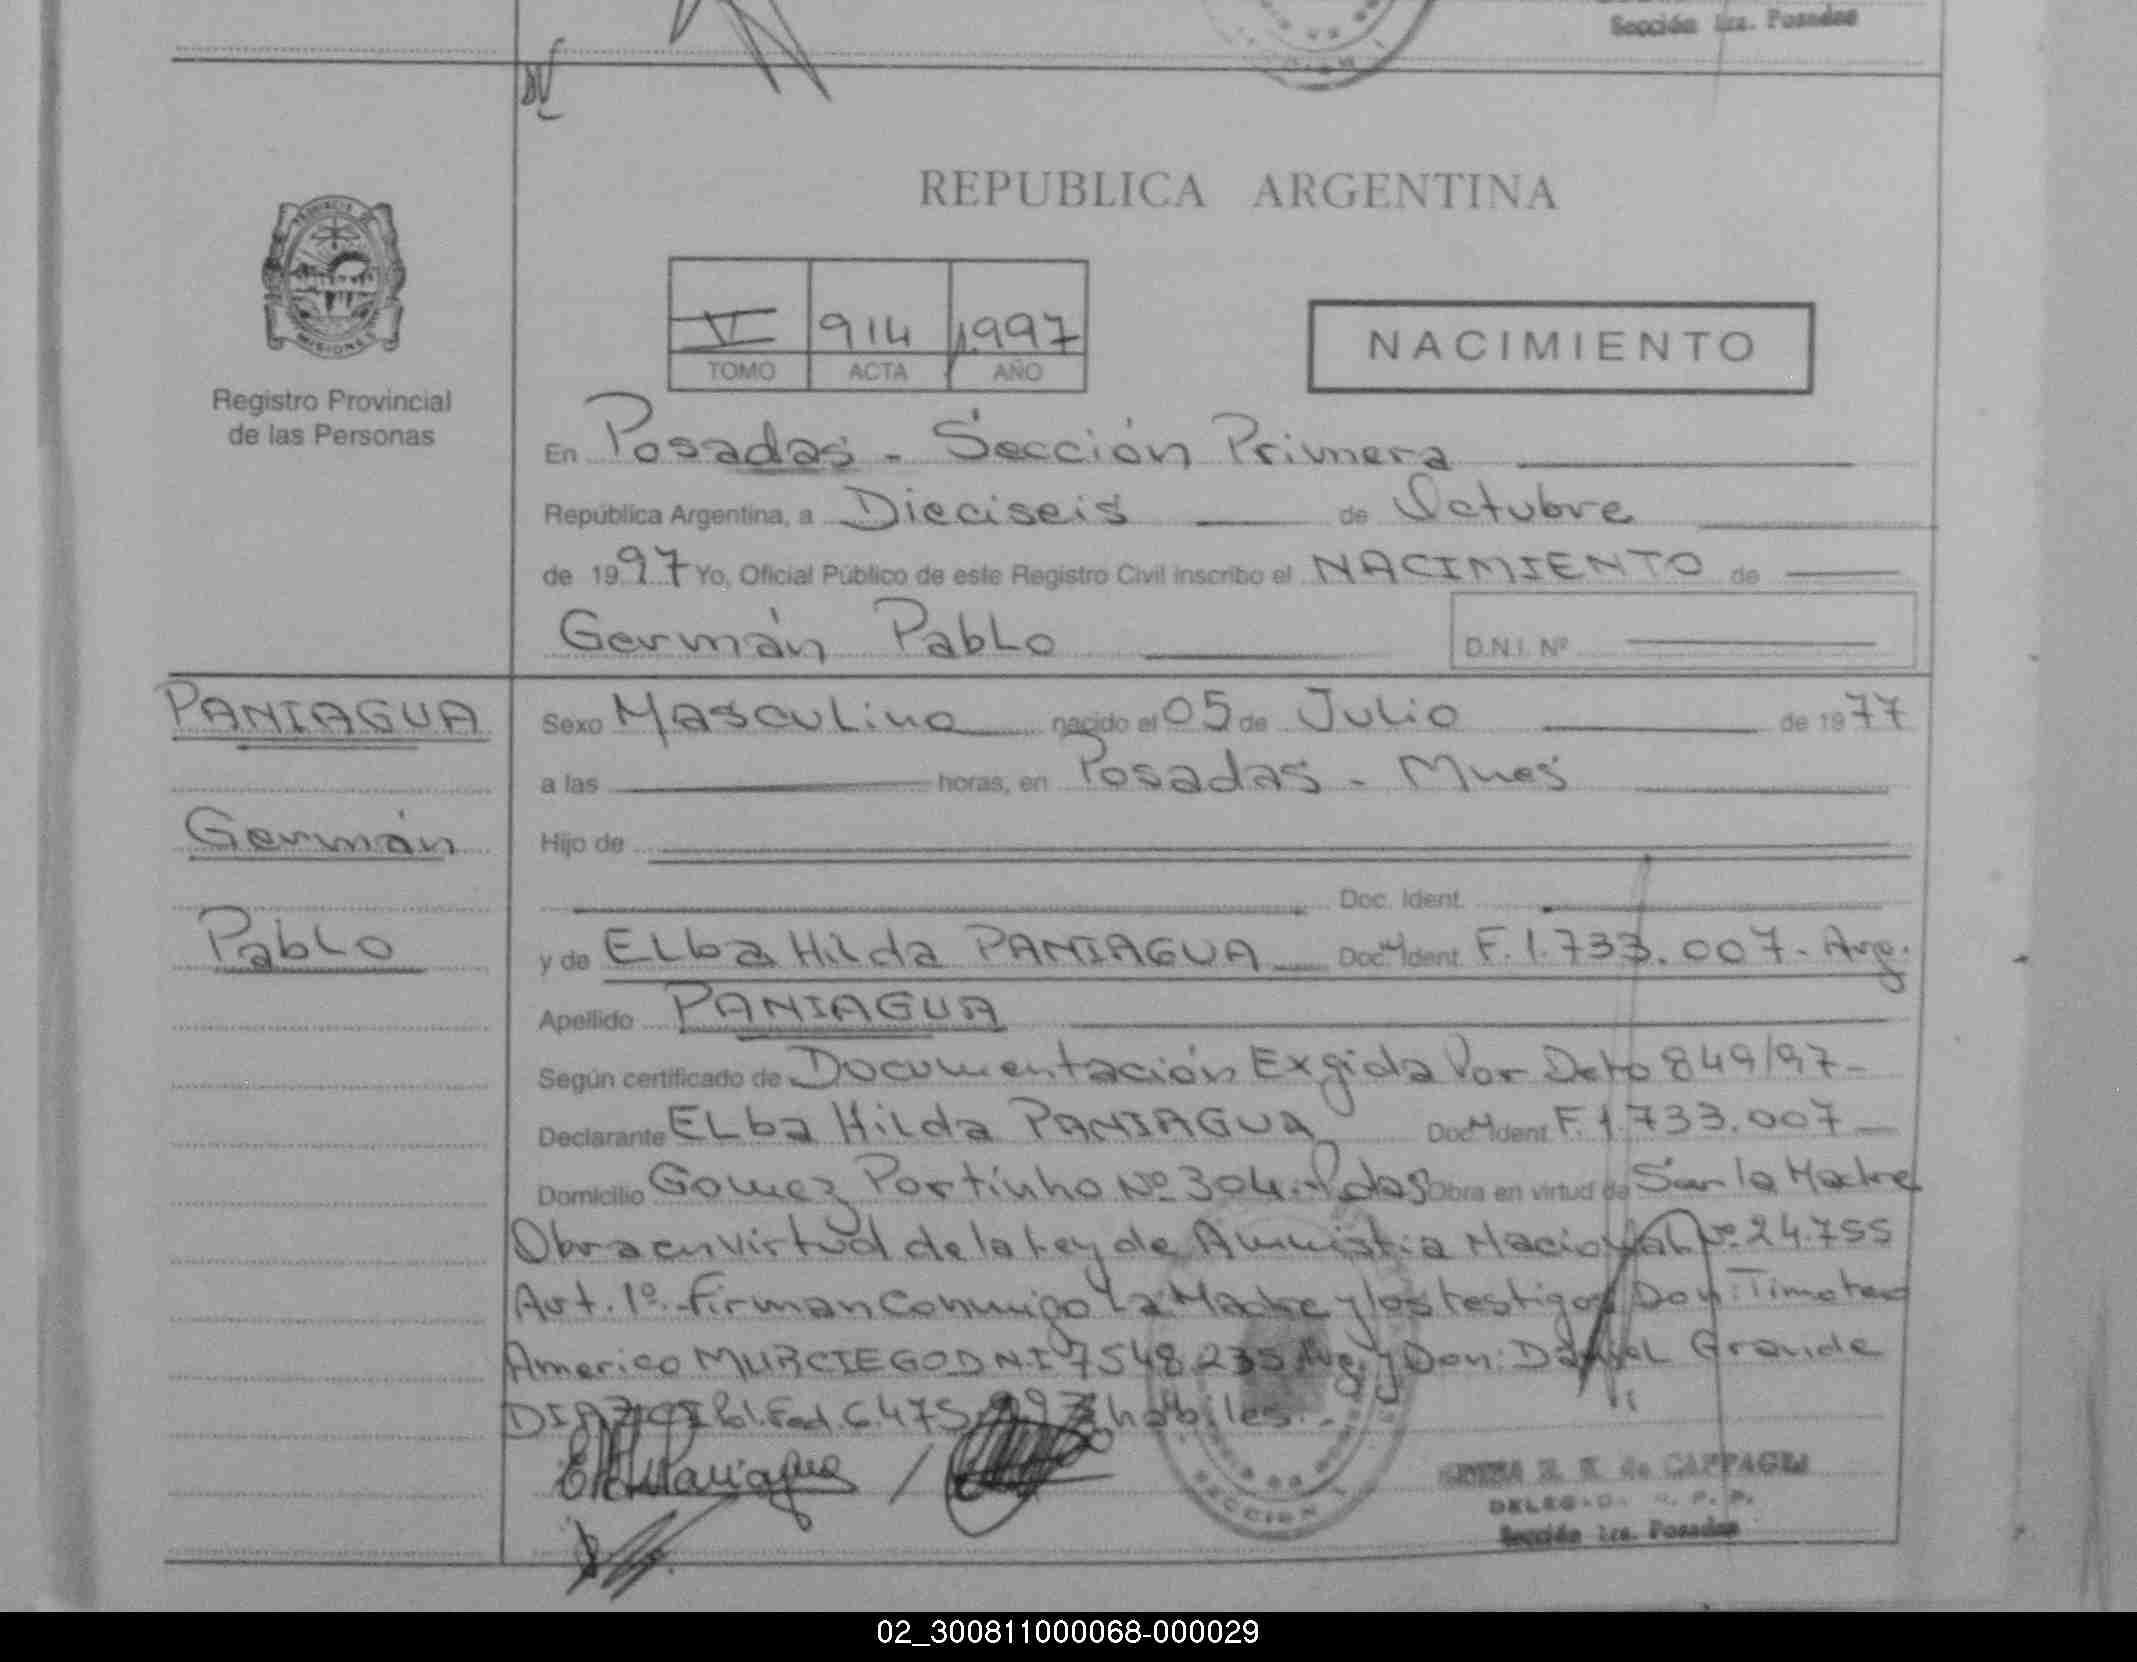 Sección 1ra. Posadas
REPUBLICA ARGENTINA
PROVINCIA DE
MISIONES
Registro Provincial
de las Personas
VI 914 1997
TOMO ACTA AÑO
NACIMIENTO
En Posadas - Sección Primera
República Argentina, a Dieciseis de Octubre
de 1997 Yo, Oficial Público de este Registro Civil inscribo el NACIMIENTO de
Germán Pablo D.N.I. Nº
PANIAGUA
Germán
Pablo
Sexo Masculino nacido el 05 de Julio de 1977
a las horas, en Posadas - Mnes
Hijo de
Doc. Ident.
y de Elba Hilda PANIAGUA Doc. Ident. F.1.733.007.- Arg.
Apellido PANIAGUA
Según certificado de Documentación Exgida Por Dcto 849/97-
Declarante Elba Hilda PANIAGUA Doc. Ident. F.1.733.007
Domicilio Gomez Portinho Nº 304.- Pdas Obra en virtud de Ser la Madre
Obra en virtud de la Ley de Amnistia Nacional Nº 24.755
Art. 1º.- Firman Conmigo La Madre y los testigos Don: Timoteo
Americo MURCIEGO D.N.I 7548.235 Arg. y Don: Daniel Grande
DIAZ CI Pol. Fed. 6.475 habiles.-
de CAFFAGNI
DELEGADA R. P. P.
Sección 1ra. Posadas
SECCION 1
02_300811000068-000029